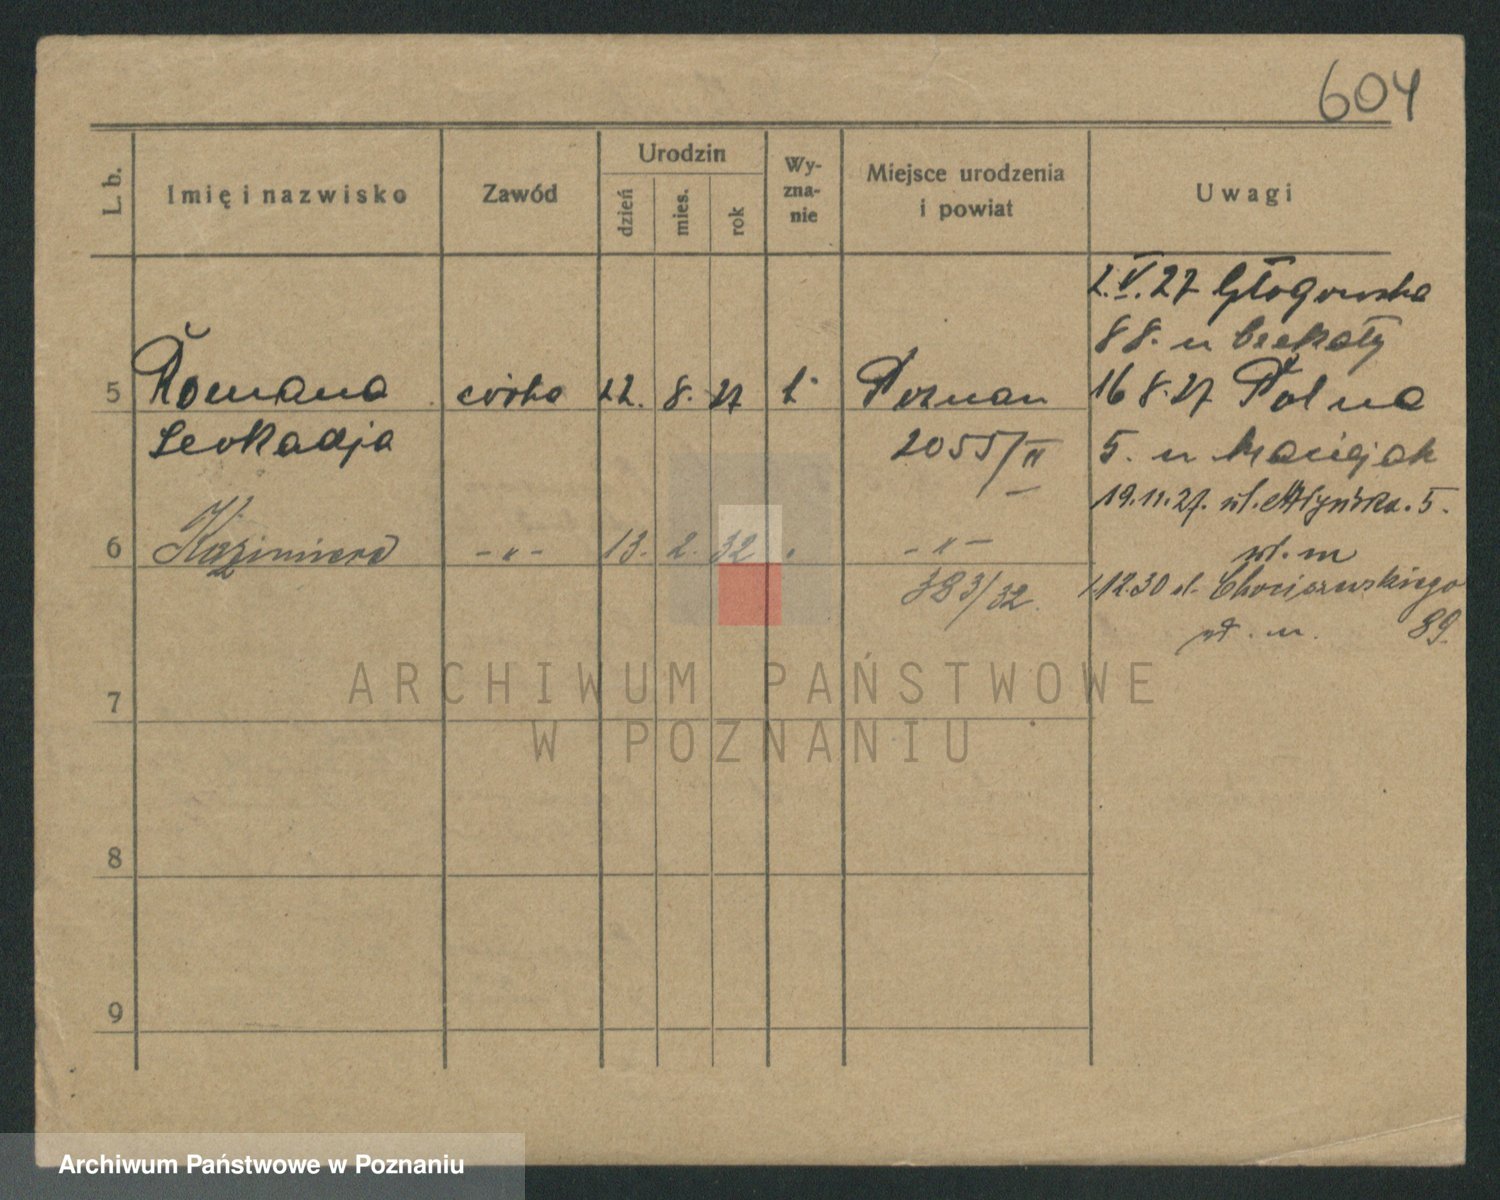 604
L. b. Imię i nazwisko Zawód Urodzin dzień mies. rok Wy-zna-nie Miejsce urodzenia i powiat Uwagi
2.V.27 Głogowska
88. u
5 Romana córka 22. 8. 27 Poznań 16 8.27 Polna
Leokadja 2055/II 5. u Maciejak
19.11.27. ul. 5.
6 Kazimiera -"- 13. 2. 32 " -"- wł. m
383/32. 1.12.30 ul. Chociszewskiego
wł. m. 89.
7
8
9
ARCHIWUM PAŃSTWOWE
W POZNANIU
Archiwum Państwowe w Poznaniu